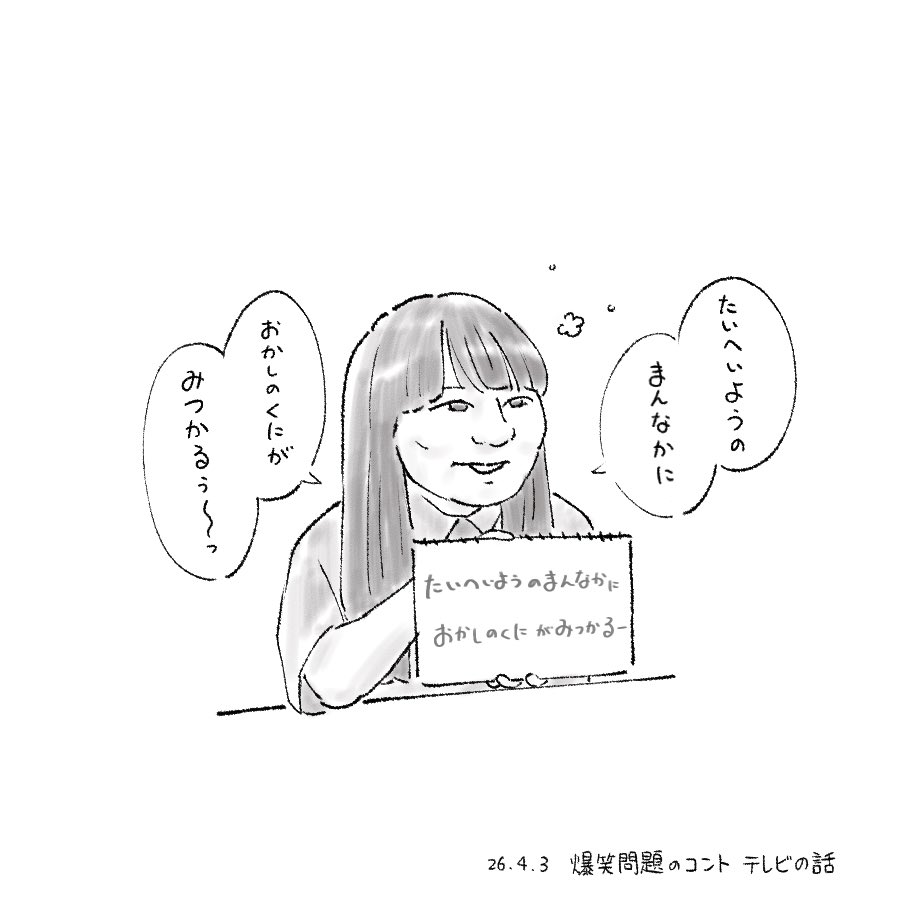 たいへいようの
まんなかに
おかしのくにが
みつかるぅ〜っ
たいへいようのまんなかに
おかしのくにがみつかるー
26.4.3 爆笑問題のコント テレビの話